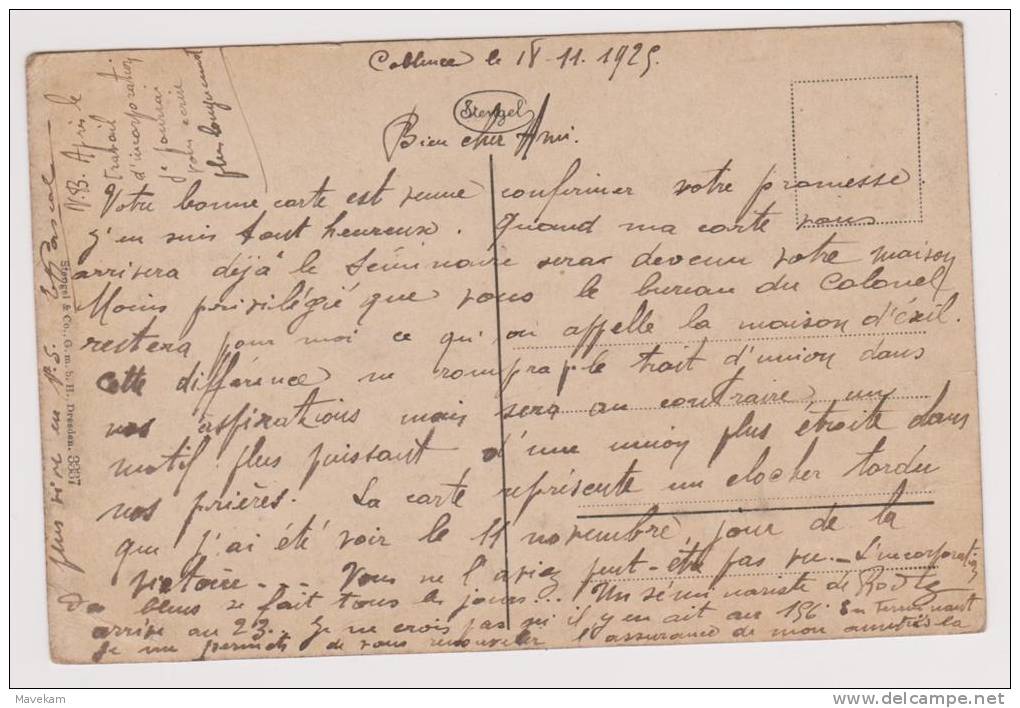 Coblence le 18-11.1925.
Stengel
Bien cher Ami.
Votre bonne carte est venue confirmer votre promesse.
J'en suis tout heureux. Quand ma carte vous
arrivera déjà le Séminaire sera devenu votre maison
Moins privilégié que vous le bureau du Colonel
restera pour moi ce qu'on appelle la maison d'éxil.
Cette différence ne rompra pas le trait d'union dans
nos aspirations mais sera au contraire, un
motif plus puissant d'une union plus étroite dans
nos prières. La carte représente un clocher tordu
que j'ai été voir le 11 novembre, jour de la
victoire... Vous ne l'aviez peut-être pas vu.- L'incorporation
des bleus se fait tous les jours... Un séminariste de Rodez
arrive au 23. Je ne crois pas qu'il y en ait au 156 En terminant
je me permets de vous renouveler l'assurance de mon amitié la
plus vive en N.S. Pascal
N.B. Après le
travail
d'incorporation
je pourrai
vous écrire
plus longuement
Stengel & Co., G.m.b.H., Dresden. 3337
Mavekam
www.delcampe.net